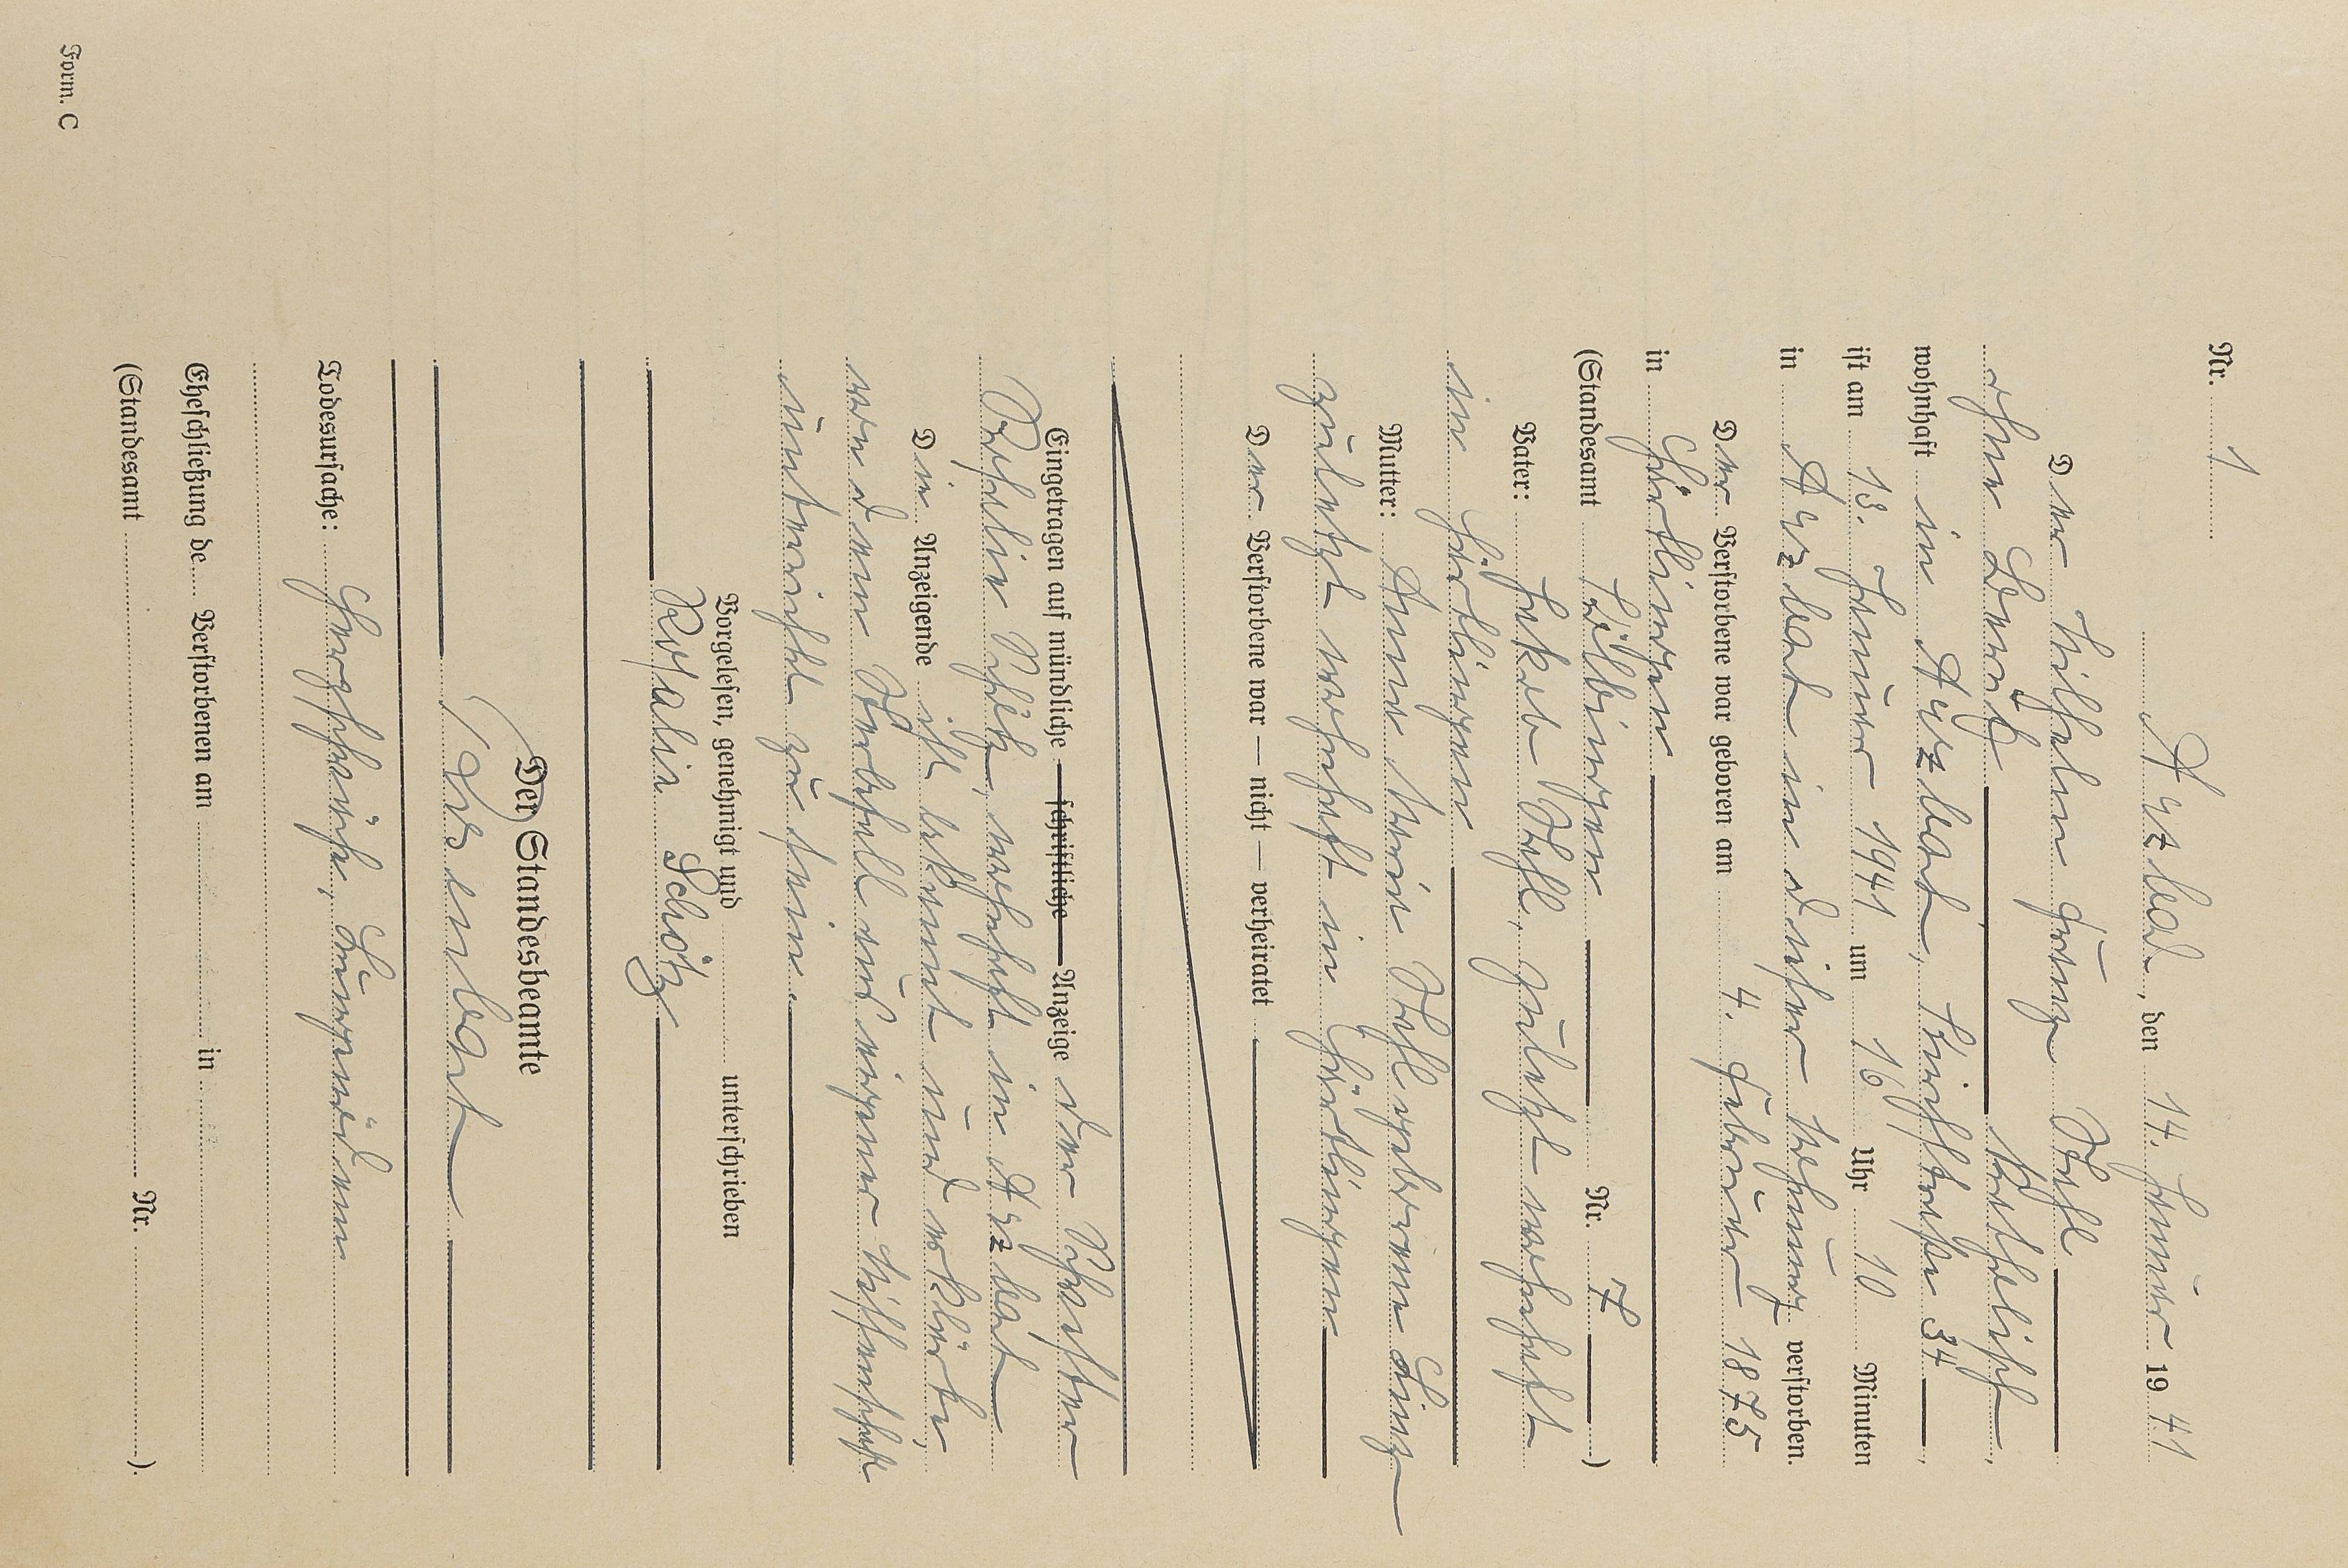 Nr. 1
Arzbach, den 14. Januar 1941
Der Wilhelm Franz Stahl
ohne Beruf katholisch,
wohnhaft in Arzbach, Kirchstraße 34
ist am 13. Januar 1941 um 16 Uhr 10 Minuten
in Arzbach in dieser Wohnung verstorben.
Der Verstorbene war geboren am 4. Februar 1875
in
(Standesamt Nr. 7)
Vater: Jakob Stahl, zuletzt wohnhaft
in
Mutter: Anna Maria Stahl geborene
zuletzt wohnhaft in
Der Verstorbene war — nicht — verheiratet
Eingetragen auf mündliche — schriftliche — Anzeige der Schwester
Rosalia Schötz, wohnhaft in Arzbach
Die Anzeigende ist bekannt und erklärte,
von dem Sterbefall aus eigener Wissenschaft
unterrichtet zu sein.
Vorgelesen, genehmigt und unterschrieben
Rosalia Schötz
Der Standesbeamte
Todesursache: Herzschwäche, Lungenödem
Eheschließung de Verstorbenen am in
(Standesamt Nr. ).
Form. C